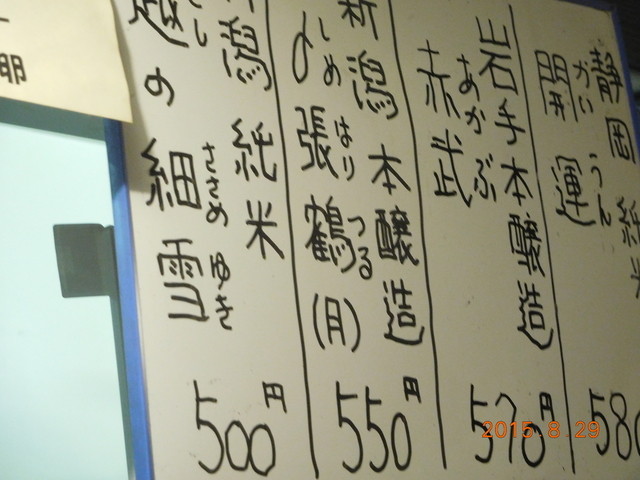 静岡 純米
かいうん
開運
580
岩手 本醸造
あかぶ
赤武
570円
新潟 本醸造
しめ はり つる
〆張鶴(月)
550円
新潟 純米
こし ささめ ゆき
越の細雪
500円
2015.8.29